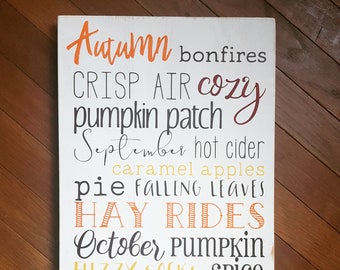 Autumn bonfires
CRISP AIR cozy
pumpkin patch
September hot cider
caramel apples
pie FALLING LEAVES
HAY RIDES
October PUMPKIN